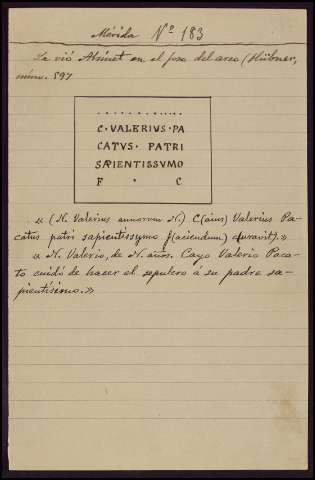 Mérida Nº 183
La vió Ahmet en el foso del arco (Hübner,
núm. 597
. . . . . . . . . . . .
C·VALERIVS·PA
CATVS·PATRI
SAPIENTISSVMO
F · C.
« (N. Valerius annorum N.) C(aius) Valerius Pa-
catus patri sapientissymo f(aciendum) c(uravit).»
« N. Valerio, de N. años. Cayo Valerio Paca-
to cuidó de hacer el sepulcro á su padre sa-
pientísimo.»